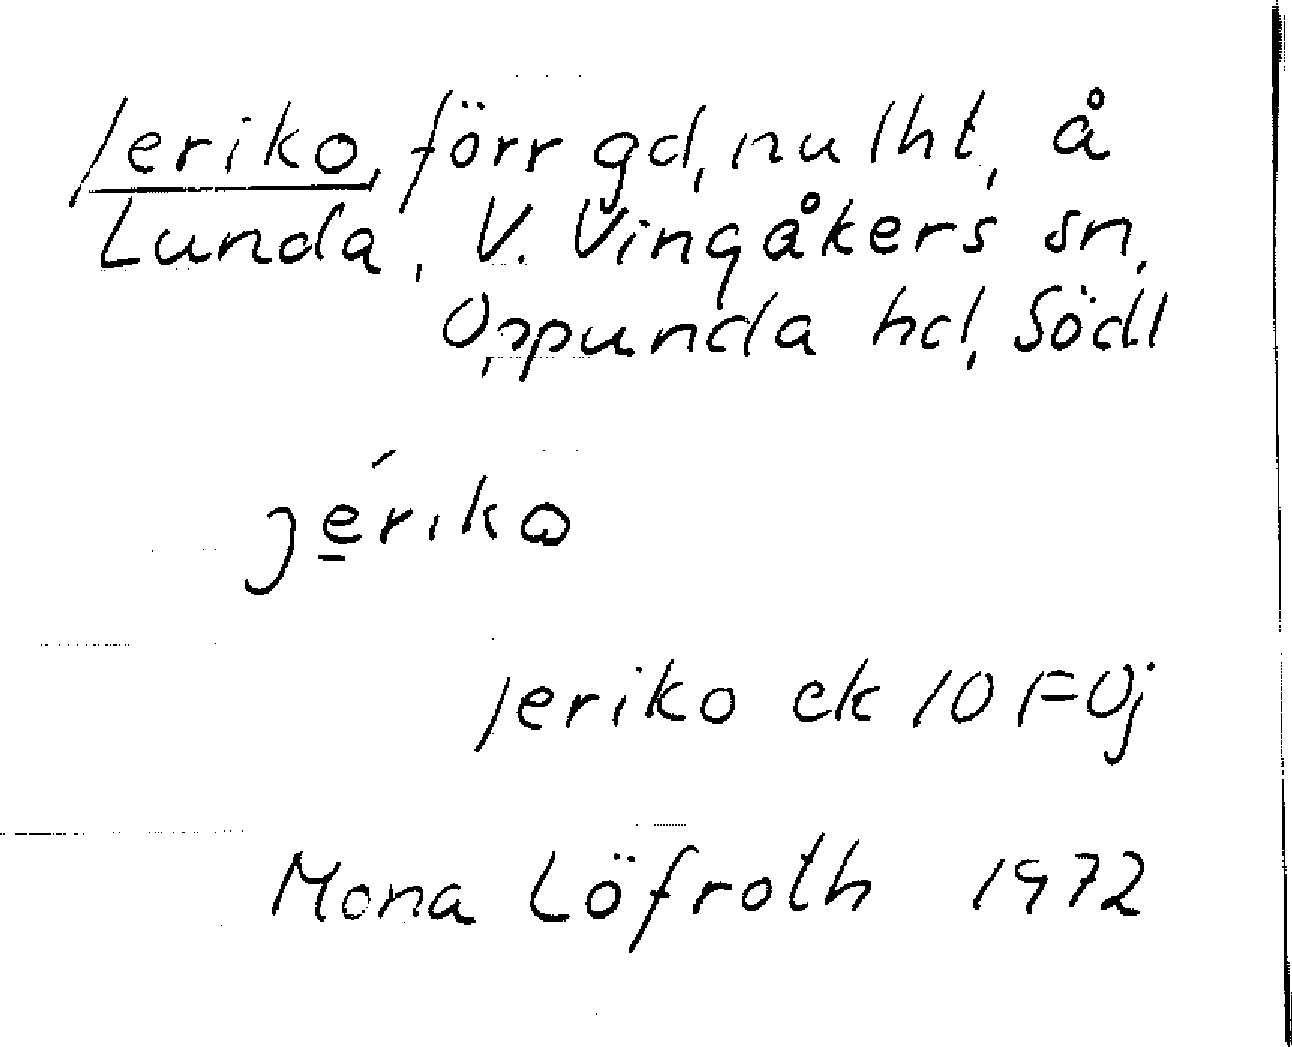 Jeriko, förr gd, nu lht, å
Lunda, V. Vingåkers sn,
Oppunda hd, Södl
jé̲riko̲
Jeriko ek 10 F 0j
Mona Löfroth 1972